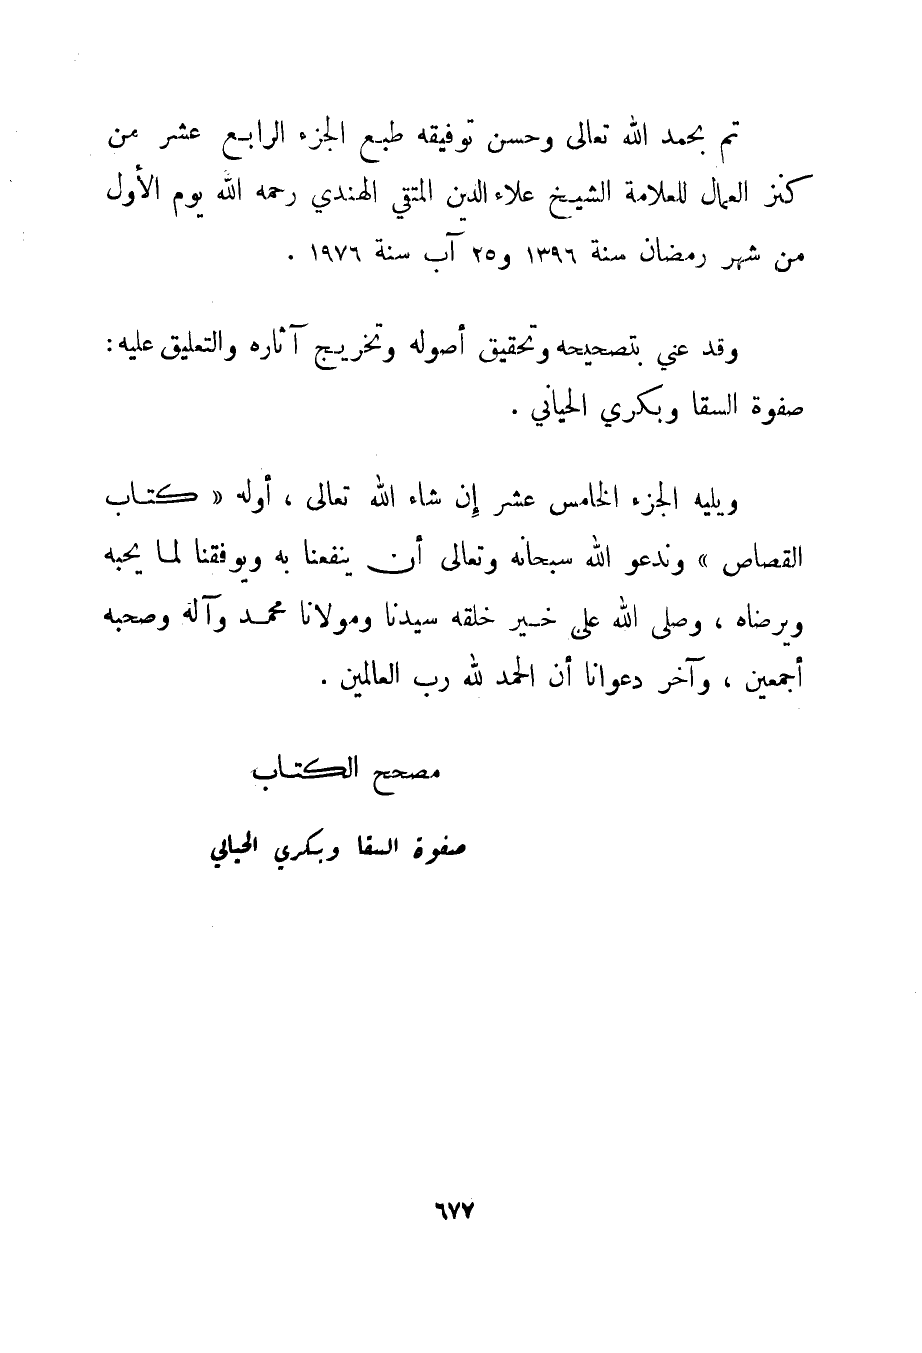 تم بحمد الله تعالى وحسن توفيقه طبع الجزء الرابع عشر من
كنز العمال للعلامة الشيخ علاء الدين المتقي الهندي رحمه الله يوم الأول
من شهر رمضان سنة ١٣٩٦ و٢٥ آب سنة ١٩٧٦ .
وقد عني بتصحيحه وتحقيق أصوله وتخريج آثاره والتعليق عليه :
صفوة السقا وبكري الحياني .
ويليه الجزء الخامس عشر إن شاء الله تعالى ، أوله « كتاب
القصاص » وندعو الله سبحانه وتعالى أن ينفعنا به ويوفقنا لما يحبه
ويرضاه ، وصلى الله على خير خلقه سيدنا ومولانا محمد وآله وصحبه
أجمعين ، وآخر دعوانا أن الحمد لله رب العالمين .
مصحح الكتاب
صفوة السقا وبكري الحياني
٦٧٧